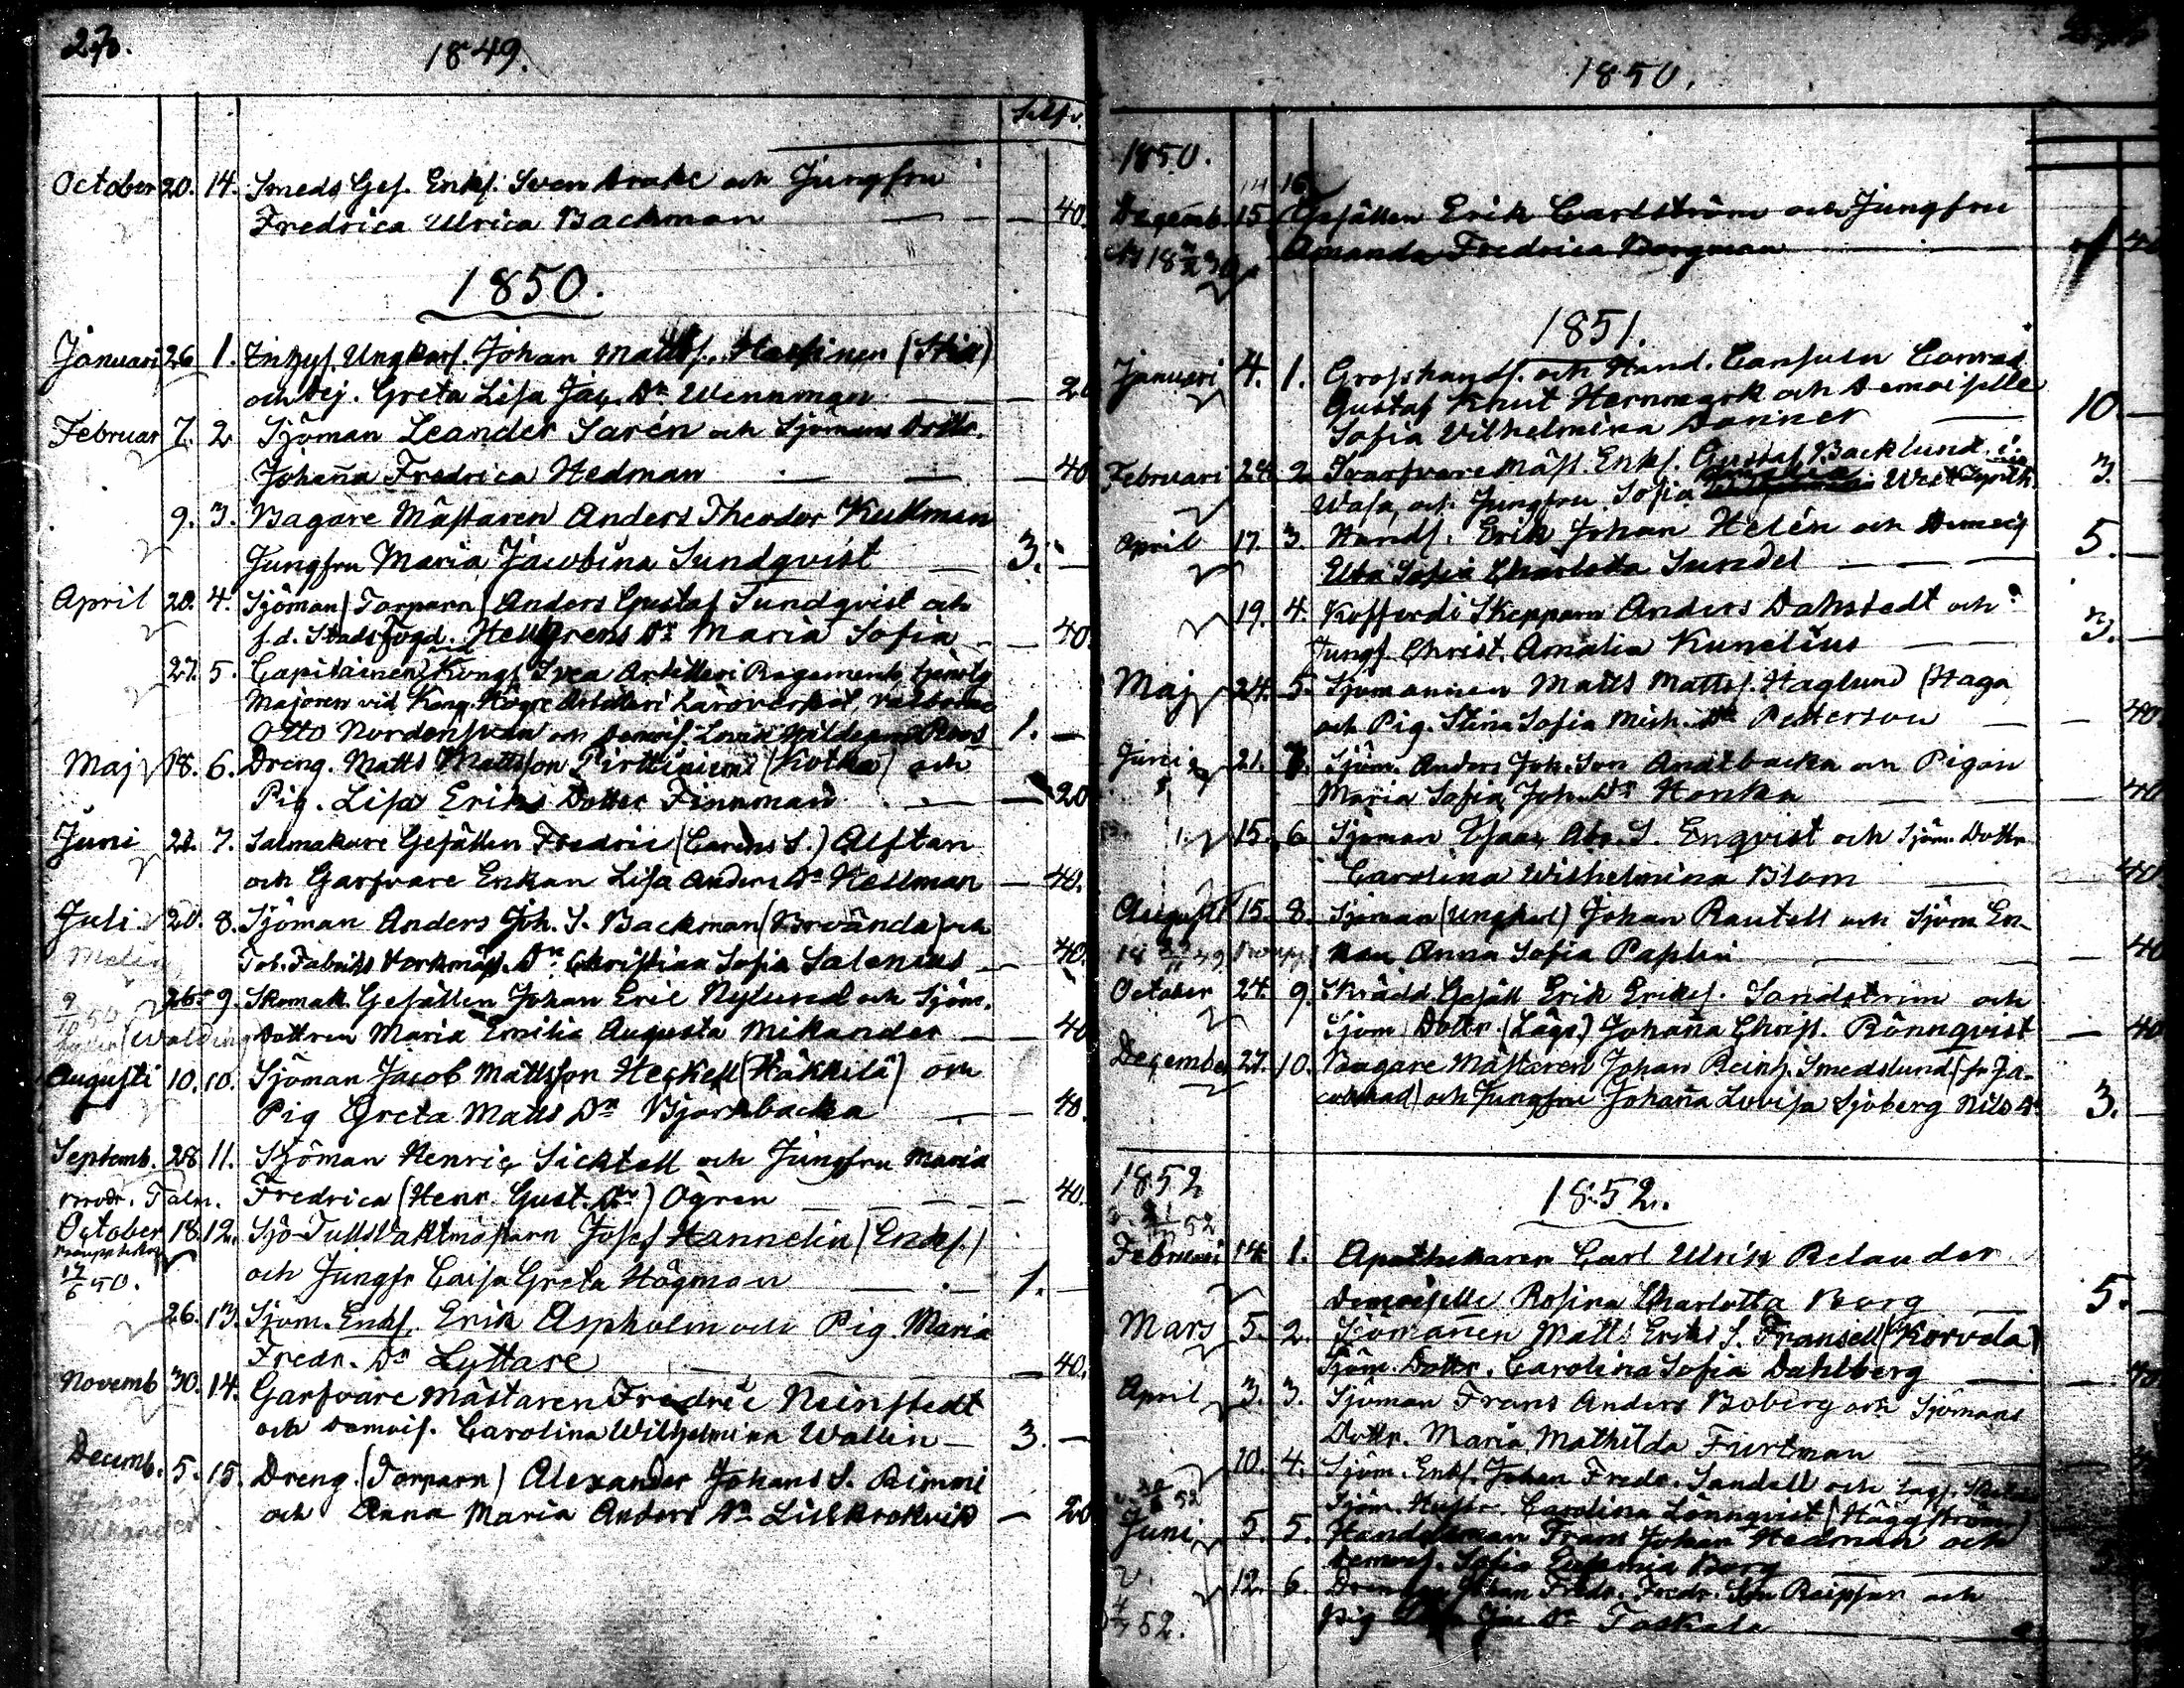 1849.
Silfv.
October 20. 14. Smeds Ges. Enkl. Sven Drake och Jungfru
Fredrica Ulrica Backman — — 40.
1850.
Januari 26 1. Inhys. Ungkarl. Johan Matts.
och Pig. Greta Lisa Jac. Dr Wennman — 20
Februar 7. 2 Sjöman Leander Sarén och Sjömans Dottr.
Johanna Fredrica Hedman — — 40
9. 3. Bagare Mästaren Anders Theodor Kukman
Jungfru Maria Jacobina Sundqvist — 3. —
April 20. 4. Sjöman (Torparn) Anders Gustaf Sundqvist och
f.d. Stads Fogd. Hellgrens Dr Maria Sofia — 40.
27. 5. Capitainen vid Kongl Svea Artilleri Regemente,
Majoren vid Kong. Högre Artilleri Läroverket,
Otto Nordensvan och Demois. Lovisa Roos 1. —
Maj 18. 6. Dreng. Matts Mattsson (Kotka) och
Pig. Lisa Eriks Dotter Finnman — — 20
Juni 22. 7. Salmakare Gesällen Fredric (Carins S.) Alftan
och Garfvare Enkan Lisa Anders Dr Hellman — 40.
Juli 20. 8. Sjöman Anders Joh. S. Backman (Brvända) och
Tob. Fabriks Verkmäst. Dr Christina Sofia Salenius — 40.
26. 9. Skomak. Gesällen Johan Eric Nylund och Sjöm.
Dottren Maria Emilia Augusta Mikander — 40
Augusti 10. 10. Sjöman Jacob Mattsson Heckell (Häkkilä) och
Pig Greta Matts Dr Björkbacka — 40.
Septemb. 28 11. Sjöman Henric Sicktell och Jungfru Maria
Fredrica (Henr. Gust. Dr) Ögren — — 40.
October 18. 12. Sjö-Tullsvaktmästarn Josef Hannelin (Enkl.)
17/6 50. och Jungfr Caisa Greta Högman — 1. —
26. 13. Sjöm. Enkl. Erik Aspholm och Pig. Maria
Fredr. Dr Lyttare — 40.
Novemb 30. 14. Garfvare Mästaren Fredric Reinstedt
och Demois. Carolina Wilhelmina Wallin — 3. —
Decemb. 5. 15. Dreng. (Torparn) Alexander Johans S. Rimmi
och Anna Maria Anders Dr Lillkrokvik — 20
1850.
1850.
Decemb. 15 16 Gesällen Erik Carlström och Jungfru
Amanda Fredrica Bergman — 40
1851.
Januari 4. 1. Grosshandl. och Hand. Consuln Conrad
Gustaf Knut Hernmark och Demoiselle
Sofia Vilhelmina Donner — 10. —
Februari 24 2 Svarfvare Mäst. Enkl. Gustaf Backlund i
Wasa, och Jungfru Sofia 3. —
April 17. 3. Handl. Erik Johan Helén och Demois
Ulla Sofia Charlotta Sundel — 5. —
19. 4. Kofferdi Skepparn Anders Dahlstedt och
Jungf. Christ. Amalia Kunelius — 3. —
Maj 24. 5. Sjömannen Matts Matts. Haglund (Haga
och Pig. Stina Sofia Mich. Dr Petterson — — 40.
Juni 21. 7. Sjöm. Anders Joh. Son Andtbacka och Pigan
Maria Sofia Joh. Dr Honka — 40
15. 6 Sjöman Isaac Abr. S. Enqvist och Sjöm. Dottr
Carolina Wilhelmina Blom — 40
August 15. 8. Sjöman (Ungkarl) Johan Rautell och Sjöm. En-
kan Anna Sofia Paplin — 40
October 24. 9. Skrädd. Gesäll Erik Eriks. Sandström och
Sjöm Dottr. (Lägs.) Johanna Christ. Rönnqvist — 40
December 27. 10. Bagare Mästaren Johan Reinh. Smedslund (fr Ja-
cobstad) och Jungfru Johanna Lovisa Sjöberg Nils Dr 3. —
1852
1852.
Februari 14 1. Apothekaren Carl Ulrik Relander
Demoiselle Rosina Charlotta Borg — 5. —
Mars 5. 2. Sjömannen Matts Eriks S. Fransell (Korvela)
Sjöm. Dottr. Carolina Sofia Dahlberg — — 40
April 3. 3. Sjöman Frans Anders Boberg och Sjömans
Dottr. Maria Mathilda Furtman —
10. 4. Sjöm. Enkl. Johan Fredr. Sandell och
Sjöm. Hustr. Carolina Lönnqvist (Häggström)
Juni 5. 5. Handelsman Frans Johan Hedman och
Demois. Sofia Eufemia Borg
12. 6. Johan Fredr. Fredr. Son och
52. Pig Jac Dr Taskala